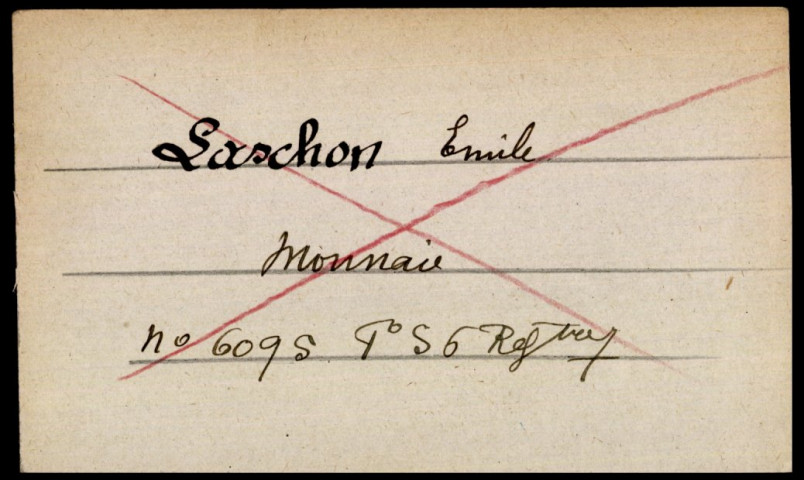 Laschon Emile
Monnaie
no 6095 Fo 56 Reg